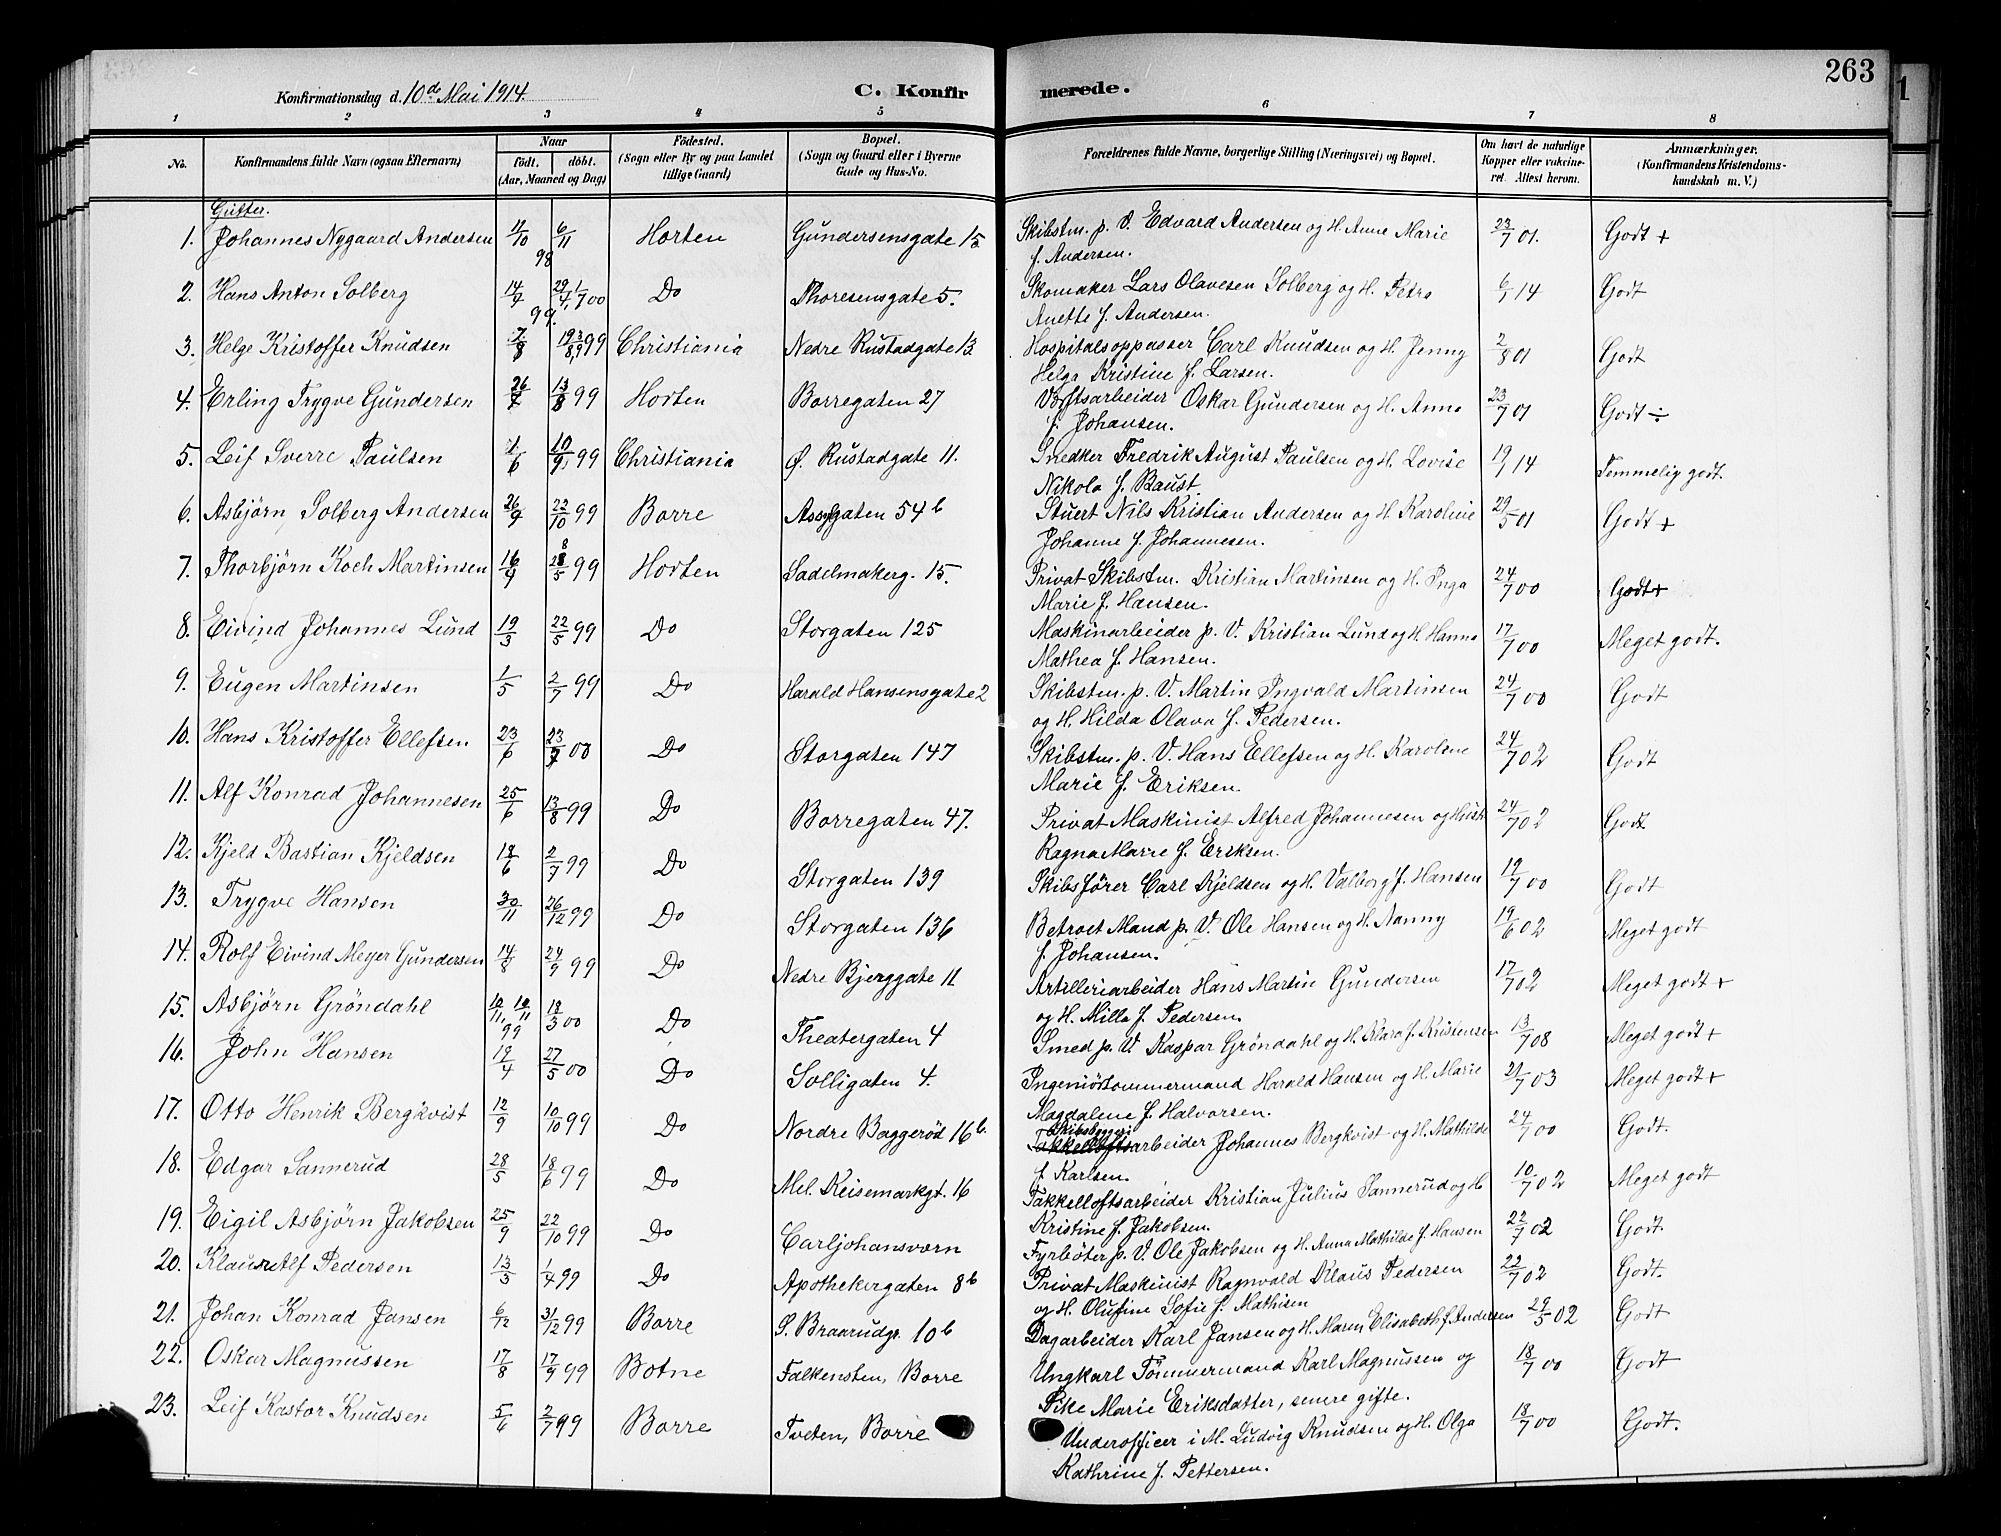 263
Konfirmationsdag d. 10de Mai 1914.
C. Konfirmerede.
1 2 3 4 5 6 7 8
No. Konfirmandens fulde Navn (ogsaa Efternavn) Naar født. døbt. (Aar, Maaned og Dag) Fødested. (Sogn eller By og paa Landet tillige Gaard) Bopæl. (Sogn og Gaard eller i Byerne Gade og Hus-No. Forældrenes fulde Navne, borgerlige Stilling (Næringsvei) og Bopæl. Om havt de naturlige Kopper eller vakcineret. Attest herom. Anmærkninger. (Konfirmandens Kristendomskundskab m. V.)
Gutter.
1. Johannes Nygaard Andersen 98 6/11 Horten Gundersensgate 15 Skibstm. p. V. Edvard Andersen og H. Anne Marie 23/7 01. Godt +
f. Andersen.
2. Hans Anton Solberg 14/7 99. 29/4 1/7 00 Do Thoresensgate 5. Skomaker Lars Olavesen Solberg og H. Petra 6/1 14 Godt
Anette f. Andersen.
3. Helge Kristoffer Knudsen 7/8 99 Christiania Nedre Rustadgate 13 Hospitalsoppasser Carl Knudsen og H. Jenny 2/8 01 Godt
Helga Kristine f. Larsen.
4. Erling Trygve Gundersen 26/7 13/8 99 Horten Borregaten 27 Værftsarbeider Oskar Gundersen og H. Anna 23/7 01 Godt ÷
f. Johansen.
5. Leif Sverre Paulsen 1/6 10/9 99 Christiania Ø. Rustadgate 11. Snedker Fredrik August Paulsen og H. Lovise 19/1 14 Temmelig godt.
Nikola f. Baust
6. Asbjørn Solberg Andersen 26/9 22/10 99 Borre Assylgaten 54 b Stuert Nils Kristian Andersen og H. Karoline 29/5 01 Godt +
Johanne f. Johannesen.
7. Thorbjørn Koch Martinsen 16/4 28/5 99 Horten Sadelmakerg. 15. Privat Skibstm. Kristian Martinsen og H. Inga 24/7 00 Godt +
Marie f. Hansen.
8. Eivind Johannes Lund 19/3 22/5 99 Do Storgaten 125 Maskinarbeider p. V. Kristian Lund og H. Hanna 17/7 00 Meget godt.
Mathea f. Hansen.
9. Eugen Martinsen 1/5 2/7 99 Do Harald Hansensgate 2 Skibstm. p. V. Martin Ingvald Martinsen 24/7 00 Godt
og H. Hilda Olava f. Pedersen.
10. Hans Kristoffer Ellefsen 23/6 23/7 00 Do Storgaten 147 Skibstm. p. V. Hans Ellefsen og H. Karoline 24/7 02 Godt
Marie f. Eriksen.
11. Alf Konrad Johannesen 25/6 13/8 99 Do Borregaten 47. Privat Maskinist Alfred Johannesen og Hustr 24/7 02 Godt
Ragna Marie f. Eriksen.
12. Kjeld Bastian Kjeldsen 18/6 2/7 99 Do Storgaten 139 Skibsfører Carl Kjeldsen og H. Valborg f. Hansen 19/7 00 Godt
13. Trygve Hansen 30/11 26/12 99 Do Storgaten 136 Betroet Mand p. V. Ole Hansen og H. Nanny 19/6 02 Meget godt
f. Johansen.
14. Rolf Eivind Meyer Gundersen 14/8 24/9 99 Do Nedre Bjerggate 11 Artilleriarbeider Hans Martin Gundersen 17/7 02 Meget godt +
og H. Milla f. Pedersen.
15. Asbjørn Grøndahl 10/11, 10/11 99 18/3 00 Do Theatergaten 4 Smed p. V. Kaspar Grøndahl og H. Klara f. Kristensen 13/7 08 Meget godt +
16. John Hansen 19/4 27/5 00 Do Solligaten 4. Ingeniørtømmermand Harald Hansen og H. Marie 21/7 03 Meget godt +
Magdalene f. Halvorsen.
17. Otto Henrik Bergkvist 12/9 10/10 99 Do Nordre Baggerød 16 b. Skibsbyggeriarbeider Johannes Bergkvist og H. Mathilde 24/7 00 Godt.
f. Karlsen.
18. Edgar Sannerud 28/5 18/6 99 Do Mel. Keisemarkgt. 16 Takkelloftsarbeider Kristian Julius Sannerud og H 10/7 02 Meget godt
Kristine f. Jakobsen.
19. Eigil Asbjørn Jakobsen 25/9 22/10 99 Do Carljohansværn Fyrbøter p. V. Ole Jakobsen og H. Anna Mathilde f. Hansen 22/7 02 Godt
20. Klaus Alf Pedersen 13/3 1/4 99 Do Apothekergaten 8 b Privat Maskinist Ragnvald Klaus Pedersen 22/7 02 Godt.
og H. Olufine Sofie f. Mathisen
21. Johan Konrad Jansen 6/12 31/12 99 Borre S. Braarudgt. 10 b Dagarbeider Karl Jansen og H. Maren Elisabeth f. Andersen 29/5 02 Godt
22. Oskar Magnussen 17/8 17/9 99 Botne Falkensten, Borre Ungkarl Tømmermand Karl Magnussen og 18/7 00 Godt
Pike Marie Eriksdatter, senere gifte.
23. Leif Kastor Knudsen 5/6 2/7 99 Borre Tveten, Borre Underofficer i M. Ludvig Knudsen og H. Olga 18/7 00 Godt.
Kathrine f. Pettersen.